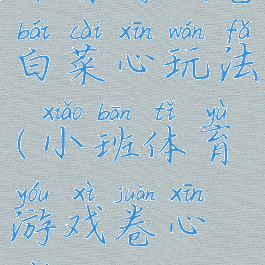 bái cài xīn wán fǎ
白菜心玩法
xiǎo bān tǐ yù
(小班体育
yóu xì juàn xīn
游戏卷心